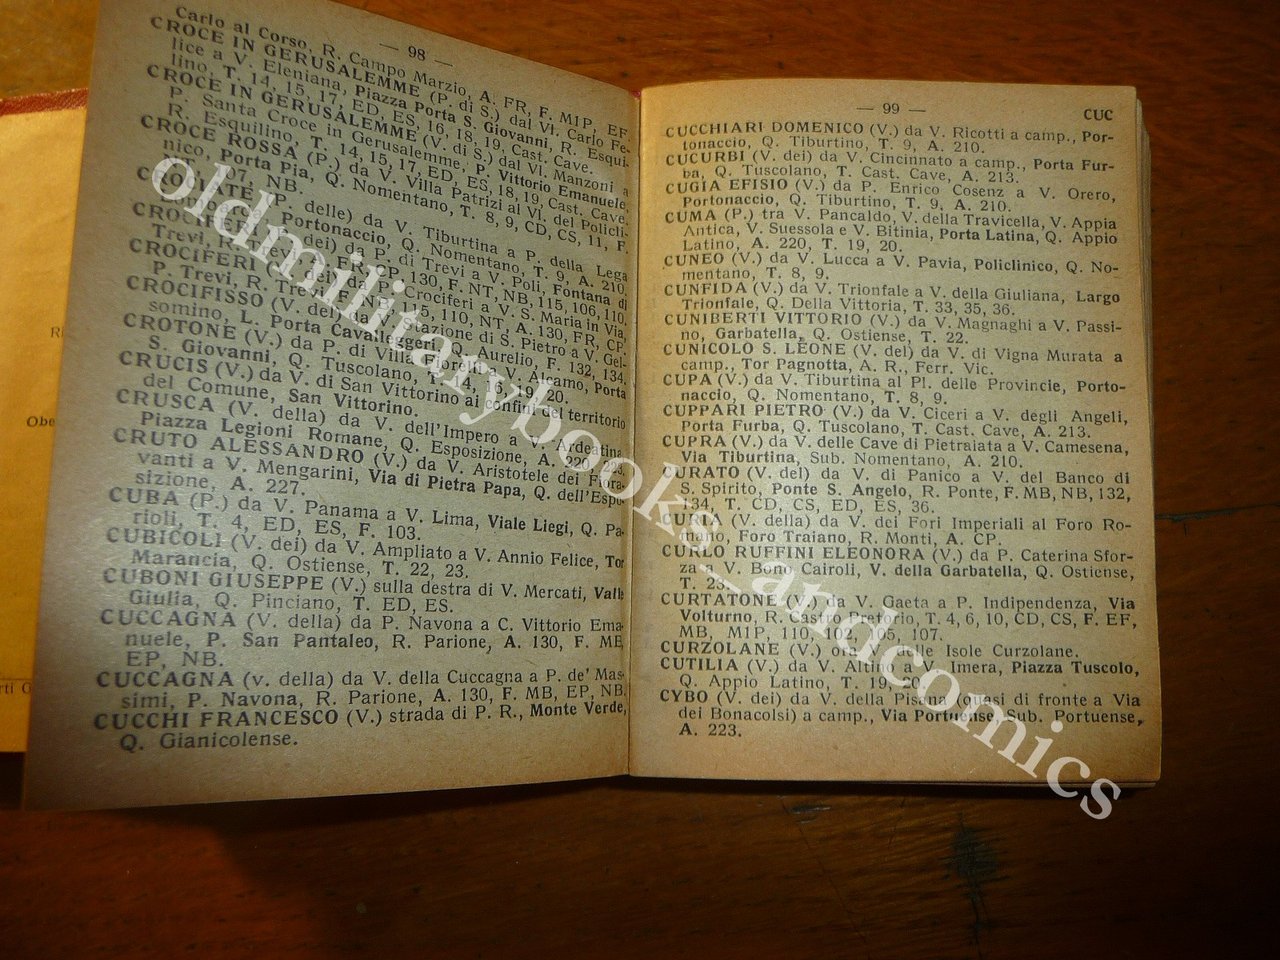 — 98 —
Carlo al Corso, R. Campo Marzio, A. FR, F. M1P, EF.
CROCE IN GERUSALEMME (P. di S.) dal Vl. Carlo Fe-
lice a V. Eleniana, Piazza Porta S. Giovanni, R. Esqui-
lino, T. 14, 15, 17, ED, ES, 16, 18, 19, Cast. Cave.
CROCE IN GERUSALEMME (V. di S.) dal Vl. Manzoni a
P. Santa Croce in Gerusalemme, P. Vittorio Emanuele,
R. Esquilino, T. 14, 15, 17, ED, ES, 18, 19, Cast. Cave.
CROCE ROSSA (P.) da V. Villa Patrizi al Vl. del Policli-
nico, Porta Pia, Q. Nomentano, T. 8, 9, CD, CS, 11, F.
107, NB.
CROCIATE (P. delle) da V. Tiburtina a P. della Lega
Lombarda, Portonaccio, Q. Nomentano, T. 9, A. 210.
CROCIFERI (P. dei) da P. di Trevi a V. Poli, Fontana di
Trevi, R. Trevi, A. FR, CP, 130, F. NT, NB, 115, 106, 110.
CROCIFERI (V. dei) da P. Crociferi a V. S. Maria in Via,
P. Trevi, R. Trevi, F. NB, 115, 110, NT, A. 130, FR, CP.
CROCIFISSO (V. del) da V. Stazione di S. Pietro a V. Gel-
somino, L. Porta Cavalleggeri, Q. Aurelio, F. 132, 134.
CROTONE (V.) da P. di Villa Fiorelli a V. Alcamo, Porta
S. Giovanni, Q. Tuscolano, T. 14, 16, 19, 20.
CRUCIS (V.) da V. di San Vittorino ai confini del territorio
del Comune, San Vittorino.
CRUSCA (V. della) da V. dell'Impero a V. Ardeatina,
Piazza Legioni Romane, Q. Esposizione, A. 220, 223.
CRUTO ALESSANDRO (V.) da V. Aristotele dei Fiora-
vanti a V. Mengarini, Via di Pietra Papa, Q. dell'Espo-
sizione, A. 227.
CUBA (P.) da V. Panama a V. Lima, Viale Liegi, Q. Pa-
rioli, T. 4, ED, ES, F. 103.
CUBICOLI (V. dei) da V. Ampliato a V. Annio Felice, Tor
Marancia, Q. Ostiense, T. 22, 23.
CUBONI GIUSEPPE (V.) sulla destra di V. Mercati, Valle
Giulia, Q. Pinciano, T. ED, ES.
CUCCAGNA (V. della) da P. Navona a C. Vittorio Ema-
nuele, P. San Pantaleo, R. Parione, A. 130, F. MB,
EP, NB.
CUCCAGNA (v. della) da V. della Cuccagna a P. de' Mas-
simi, P. Navona, R. Parione, A. 130, F. MB, EP, NB.
CUCCHI FRANCESCO (V.) strada di P. R., Monte Verde,
Q. Gianicolense.
— 99 — CUC
CUCCHIARI DOMENICO (V.) da V. Ricotti a camp., Por-
tonaccio, Q. Tiburtino, T. 9, A. 210.
CUCURBI (V. dei) da V. Cincinnato a camp., Porta Fur-
ba, Q. Tuscolano, T. Cast. Cave, A. 213.
CUGIA EFISIO (V.) da P. Enrico Cosenz a V. Orero,
Portonaccio, Q. Tiburtino, T. 9, A. 210.
CUMA (P.) tra V. Pancaldo, V. della Travicella, V. Appia
Antica, V. Suessola e V. Bitinia, Porta Latina, Q. Appio
Latino, A. 220, T. 19, 20.
CUNEO (V.) da V. Lucca a V. Pavia, Policlinico, Q. No-
mentano, T. 8, 9.
CUNFIDA (V.) da V. Trionfale a V. della Giuliana, Largo
Trionfale, Q. Della Vittoria, T. 33, 35, 36.
CUNIBERTI VITTORIO (V.) da V. Magnaghi a V. Passi-
no, Garbatella, Q. Ostiense, T. 22.
CUNICOLO S. LEONE (V. del) da V. di Vigna Murata a
camp., Tor Pagnotta, A. R., Ferr. Vic.
CUPA (V.) da V. Tiburtina al Pl. delle Provincie, Porto-
naccio, Q. Nomentano, T. 8, 9.
CUPPARI PIETRO (V.) da V. Ciceri a V. degli Angeli,
Porta Furba, Q. Tuscolano, T. Cast. Cave, A. 213.
CUPRA (V.) da V. delle Cave di Pietralata a V. Camesena,
Via Tiburtina, Sub. Nomentano, A. 210.
CURATO (V. del) da V. di Panico a V. del Banco di
S. Spirito, Ponte S. Angelo, R. Ponte, F. MB, NB, 132,
134, T. CD, CS, ED, ES, 36.
CURIA (V. della) da V. dei Fori Imperiali al Foro Ro-
mano, Foro Traiano, R. Monti, A. CP.
CURLO RUFFINI ELEONORA (V.) da P. Caterina Sfor-
za a V. Bono Cairoli, V. della Garbatella, Q. Ostiense,
T. 23.
CURTATONE (V.) da V. Gaeta a P. Indipendenza, Via
Volturno, R. Castro Pretorio, T. 4, 6, 10, CD, CS, F. EF,
MB, M1P, 110, 102, 105, 107.
CURZOLANE (V.) ora V. delle Isole Curzolane.
CUTILIA (V.) da V. Altino a V. Imera, Piazza Tuscolo,
Q. Appio Latino, T. 19, 20.
CYBO (V. dei) da V. della Pisana (quasi di fronte a Via
dei Bonacolsi) a camp., Via Portuense, Sub. Portuense,
A. 223.
oldmilitarybooks_andcomics